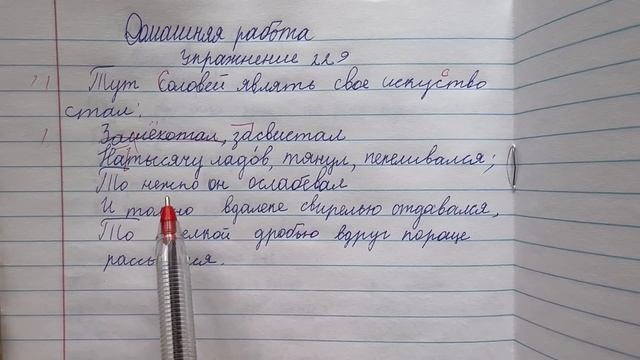 Домашняя работа
Упражнение 229
Тут Соловей являть свое искуство
стал:
Защёкотал, засвистал
Натысячу ладов, тянул, переливался;
То нежно он ослабевал
И вдалеке свирелью отдавался,
То дробью вдруг пороще